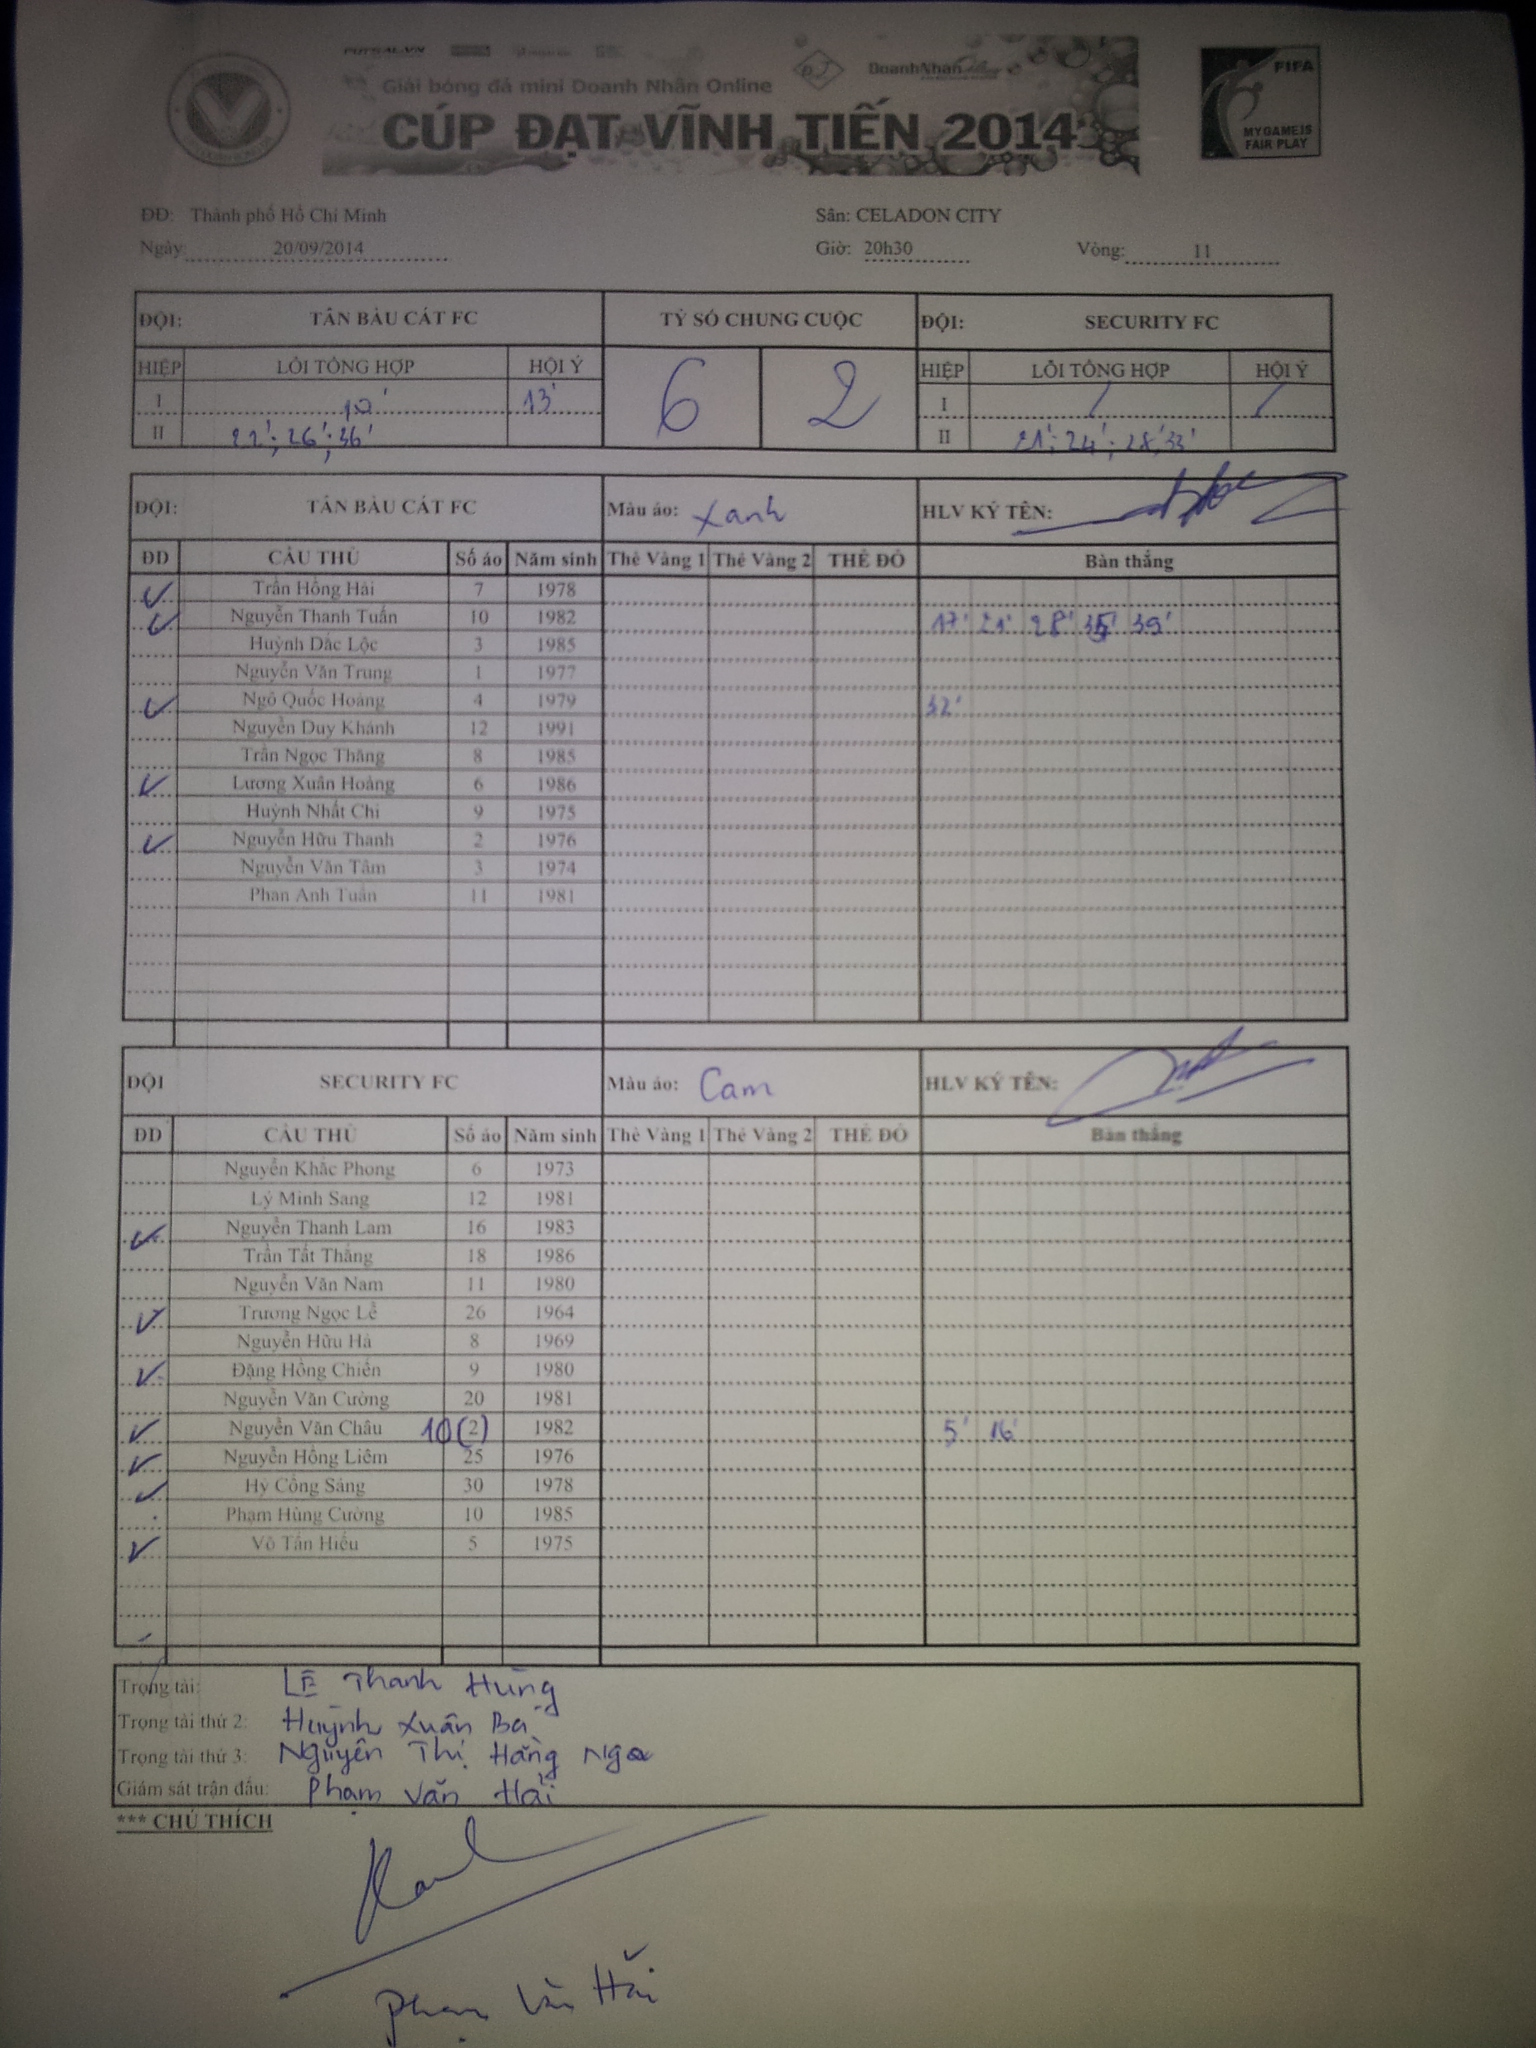 FUTSAL.VN
Giải bóng đá mini Doanh Nhân Online
CÚP ĐẠT VĨNH TIẾN 2014
FIFA
MY GAME IS
FAIR PLAY
ĐĐ: Thành phố Hồ Chí Minh Sân: CELADON CITY
Ngày: 20/09/2014 Giờ: 20h30 Vòng: 11
ĐỘI: TÂN BÀU CÁT FC TỶ SỐ CHUNG CUỘC ĐỘI: SECURITY FC
HIỆP LỖI TỔNG HỢP HỘI Ý 6 2 HIỆP LỖI TỔNG HỢP HỘI Ý
I 10' 13' I / /
II 22'; 26'; 36' II 21'; 24'; 28'; 33'
ĐỘI: TÂN BÀU CÁT FC Màu áo: Xanh HLV KÝ TÊN:
ĐD CẦU THỦ Số áo Năm sinh Thẻ Vàng 1 Thẻ Vàng 2 THẺ ĐỎ Bàn thắng
✓ Trần Hồng Hải 7 1978
✓ Nguyễn Thanh Tuấn 10 1982 17' 21' 28' 35' 39'
Huỳnh Đắc Lộc 3 1985
Nguyễn Văn Trung 1 1977
✓ Ngô Quốc Hoàng 4 1979 32'
Nguyễn Duy Khánh 12 1991
Trần Ngọc Thăng 8 1985
✓ Lương Xuân Hoàng 6 1986
Huỳnh Nhất Chi 9 1975
✓ Nguyễn Hữu Thanh 2 1976
Nguyễn Văn Tâm 3 1974
Phan Anh Tuấn 11 1981
ĐỘI SECURITY FC Màu áo: Cam HLV KÝ TÊN:
ĐD CẦU THỦ Số áo Năm sinh Thẻ Vàng 1 Thẻ Vàng 2 THẺ ĐỎ Bàn thắng
Nguyễn Khắc Phong 6 1973
Lý Minh Sang 12 1981
✓ Nguyễn Thanh Lam 16 1983
Trần Tất Thắng 18 1986
Nguyễn Văn Nam 11 1980
✓ Trương Ngọc Lễ 26 1964
Nguyễn Hữu Hà 8 1969
✓ Đặng Hồng Chiến 9 1980
Nguyễn Văn Cường 20 1981
✓ Nguyễn Văn Châu 10 (2) 1982 5' 16'
✓ Nguyễn Hồng Liêm 25 1976
✓ Hỷ Công Sáng 30 1978
Phạm Hùng Cường 10 1985
✓ Võ Tấn Hiếu 5 1975
Trọng tài: LÊ Thanh Hùng
Trọng tài thứ 2: Huỳnh Xuân Ba
Trọng tài thứ 3: Nguyễn Thị Hằng Nga
Giám sát trận đấu: Phạm Văn Hải
*** CHÚ THÍCH
Phạm Văn Hải